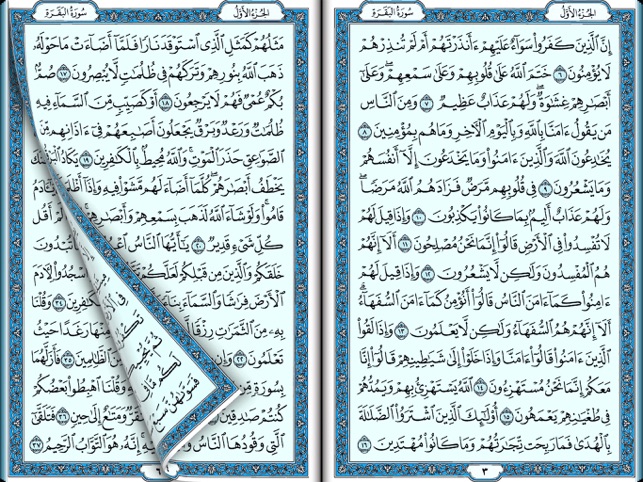 الجُزْءُ الأَوَّلُ سُورَةُ البَقَرَةِ
إِنَّ ٱلَّذِينَ كَفَرُوا۟ سَوَآءٌ عَلَيْهِمْ ءَأَنذَرْتَهُمْ أَمْ لَمْ تُنذِرْهُمْ
لَا يُؤْمِنُونَ ٦ خَتَمَ ٱللَّهُ عَلَىٰ قُلُوبِهِمْ وَعَلَىٰ سَمْعِهِمْ ۖ وَعَلَىٰٓ
أَبْصَٰرِهِمْ غِشَٰوَةٌ ۖ وَلَهُمْ عَذَابٌ عَظِيمٌ ٧ وَمِنَ ٱلنَّاسِ
مَن يَقُولُ ءَامَنَّا بِٱللَّهِ وَبِٱلْيَوْمِ ٱلْءَاخِرِ وَمَا هُم بِمُؤْمِنِينَ ٨
يُخَٰدِعُونَ ٱللَّهَ وَٱلَّذِينَ ءَامَنُوا۟ وَمَا يَخْدَعُونَ إِلَّآ أَنفُسَهُمْ
وَمَا يَشْعُرُونَ ٩ فِى قُلُوبِهِم مَّرَضٌ فَزَادَهُمُ ٱللَّهُ مَرَضًا ۖ
وَلَهُمْ عَذَابٌ أَلِيمٌۢ بِمَا كَانُوا۟ يَكْذِبُونَ ١٠ وَإِذَا قِيلَ لَهُمْ
لَا تُفْسِدُوا۟ فِى ٱلْأَرْضِ قَالُوٓا۟ إِنَّمَا نَحْنُ مُصْلِحُونَ ١١ أَلَآ إِنَّهُمْ
هُمُ ٱلْمُفْسِدُونَ وَلَٰكِن لَّا يَشْعُرُونَ ١٢ وَإِذَا قِيلَ لَهُمْ
ءَامِنُوا۟ كَمَآ ءَامَنَ ٱلنَّاسُ قَالُوٓا۟ أَنُؤْمِنُ كَمَآ ءَامَنَ ٱلسُّفَهَآءُ ۗ
أَلَآ إِنَّهُمْ هُمُ ٱلسُّفَهَآءُ وَلَٰكِن لَّا يَعْلَمُونَ ١٣ وَإِذَا لَقُوا۟
ٱلَّذِينَ ءَامَنُوا۟ قَالُوٓا۟ ءَامَنَّا وَإِذَا خَلَوْا۟ إِلَىٰ شَيَٰطِينِهِمْ قَالُوٓا۟ إِنَّا
مَعَكُمْ إِنَّمَا نَحْنُ مُسْتَهْزِءُونَ ١٤ ٱللَّهُ يَسْتَهْزِئُ بِهِمْ وَيَمُدُّهُمْ
فِى طُغْيَٰنِهِمْ يَعْمَهُونَ ١٥ أُو۟لَٰٓئِكَ ٱلَّذِينَ ٱشْتَرَوُا۟ ٱلضَّلَٰلَةَ
بِٱلْهُدَىٰ فَمَا رَبِحَت تِّجَٰرَتُهُمْ وَمَا كَانُوا۟ مُهْتَدِينَ ١٦
٣
الجُزْءُ الأَوَّلُ سُورَةُ البَقَرَةِ
مَثَلُهُمْ كَمَثَلِ ٱلَّذِى ٱسْتَوْقَدَ نَارًا فَلَمَّآ أَضَآءَتْ مَا حَوْلَهُۥ
ذَهَبَ ٱللَّهُ بِنُورِهِمْ وَتَرَكَهُمْ فِى ظُلُمَٰتٍ لَّا يُبْصِرُونَ ١٧ صُمٌّۢ
بُكْمٌ عُمْىٌ فَهُمْ لَا يَرْجِعُونَ ١٨ أَوْ كَصَيِّبٍ مِّنَ ٱلسَّمَآءِ فِيهِ
ظُلُمَٰتٌ وَرَعْدٌ وَبَرْقٌ يَجْعَلُونَ أَصَٰبِعَهُمْ فِىٓ ءَاذَانِهِم مِّنَ
ٱلصَّوَٰعِقِ حَذَرَ ٱلْمَوْتِ ۚ وَٱللَّهُ مُحِيطٌۢ بِٱلْكَٰفِرِينَ ١٩ يَكَادُ ٱلْبَرْقُ
يَخْطَفُ أَبْصَٰرَهُمْ ۖ كُلَّمَآ أَضَآءَ لَهُم مَّشَوْا۟ فِيهِ وَإِذَآ أَظْلَمَ
قَامُوا۟ ۚ وَلَوْ شَآءَ ٱللَّهُ لَذَهَبَ بِسَمْعِهِمْ وَأَبْصَٰرِهِمْ أَقُل
كُلِّ شَىْءٍ قَدِيرٌ ٢٠ يَٰٓأَيُّهَا ٱلنَّاسُ
خَلَقَكُمْ وَٱلَّذِينَ مِن قَبْلِكُمْ لَعَلَّكُمْ تُبْدُونَ
ٱلْأَرْضَ فِرَٰشًا وَٱلسَّمَآءَ بِنَآءً ٱسْجُدُوا۟ لِءَادَمَ
بِهِۦ مِنَ ٱلثَّمَرَٰتِ رِزْقًا ٱلْكَٰفِرِينَ ٣٤ وَقُلْنَا
تَعْلَمُونَ ٢٢ وَإِن مِنْهَا رَغَدًا حَيْثُ
بِسُورَةٍ مِّن ٱلظَّٰلِمِينَ ٣٥ فَأَزَلَّهُمَا
كُنتُمْ صَٰدِقِينَ وَقُلْنَا ٱهْبِطُوا۟ بَعْضُكُمْ
وَمَتَٰعٌ إِلَىٰ حِينٍ ٣٦ فَتَلَقَّىٰٓ
ٱلَّتِى وَقُودُهَا ٱلنَّاسُ إِنَّهُۥ هُوَ ٱلتَّوَّابُ ٱلرَّحِيمُ ٣٧
٦